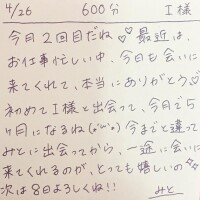 4/26 600分 I様
今月2回目だね♡♡ 最近は、
お仕事忙しい中、今日も会いに
来てくれて、本当にありがとう♡
初めてI様と出会って、今月で5
ヶ月になるね(*´ω`*) 今までと違って
みとに出会ってから、一途に会いに
来てくれるのが、とっても嬉しいの✧
次は8日よろしくね!!
みと